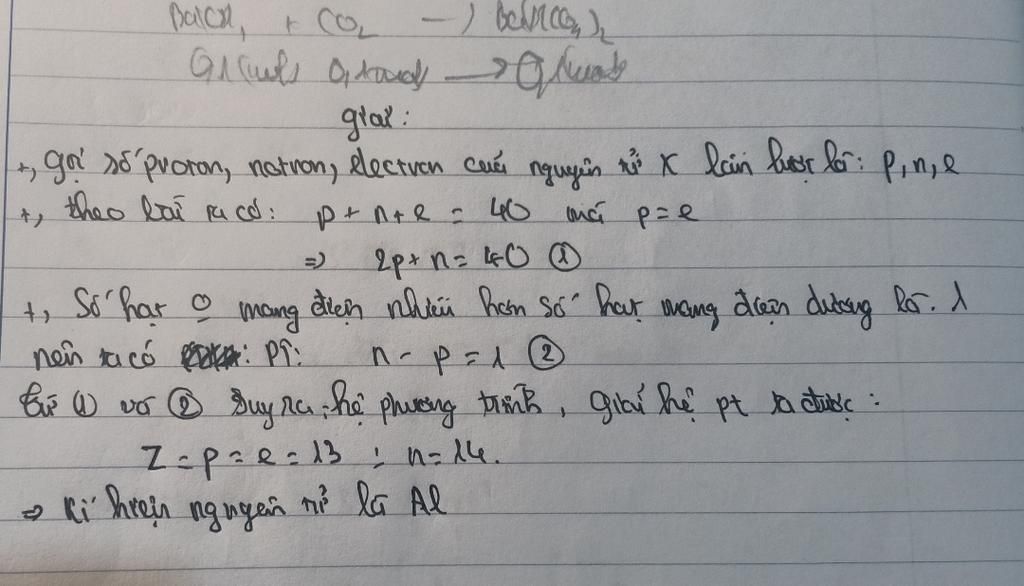 + CO₂ →
giải:
+, gọi số proton, notron, electron của nguyên tử X lần lượt là: p, n, e
+, theo bài ra có: p + n + e = 40 mà p = e
=> 2p + n = 40 ①
+, Số hạt o mang điện nhiều hơn số hạt mang điện dương là: 1
nên ta có : PT: n - p = 1 ②
từ ① và ② suy ra hệ phương trình, giải hệ pt ta được:
Z = p = e = 13 ; n = 14.
=> Kí hiệu nguyên tử là Al